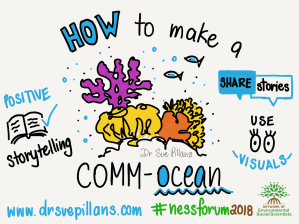 HOW to make a
POSITIVE
storytelling
SHARE stories
USE
VISUALS
Dr Sue Pillans
COMM-ocean
www.drsuepillans.com #nessforum2018
NETWORK OF
Environmental
Social Scientists